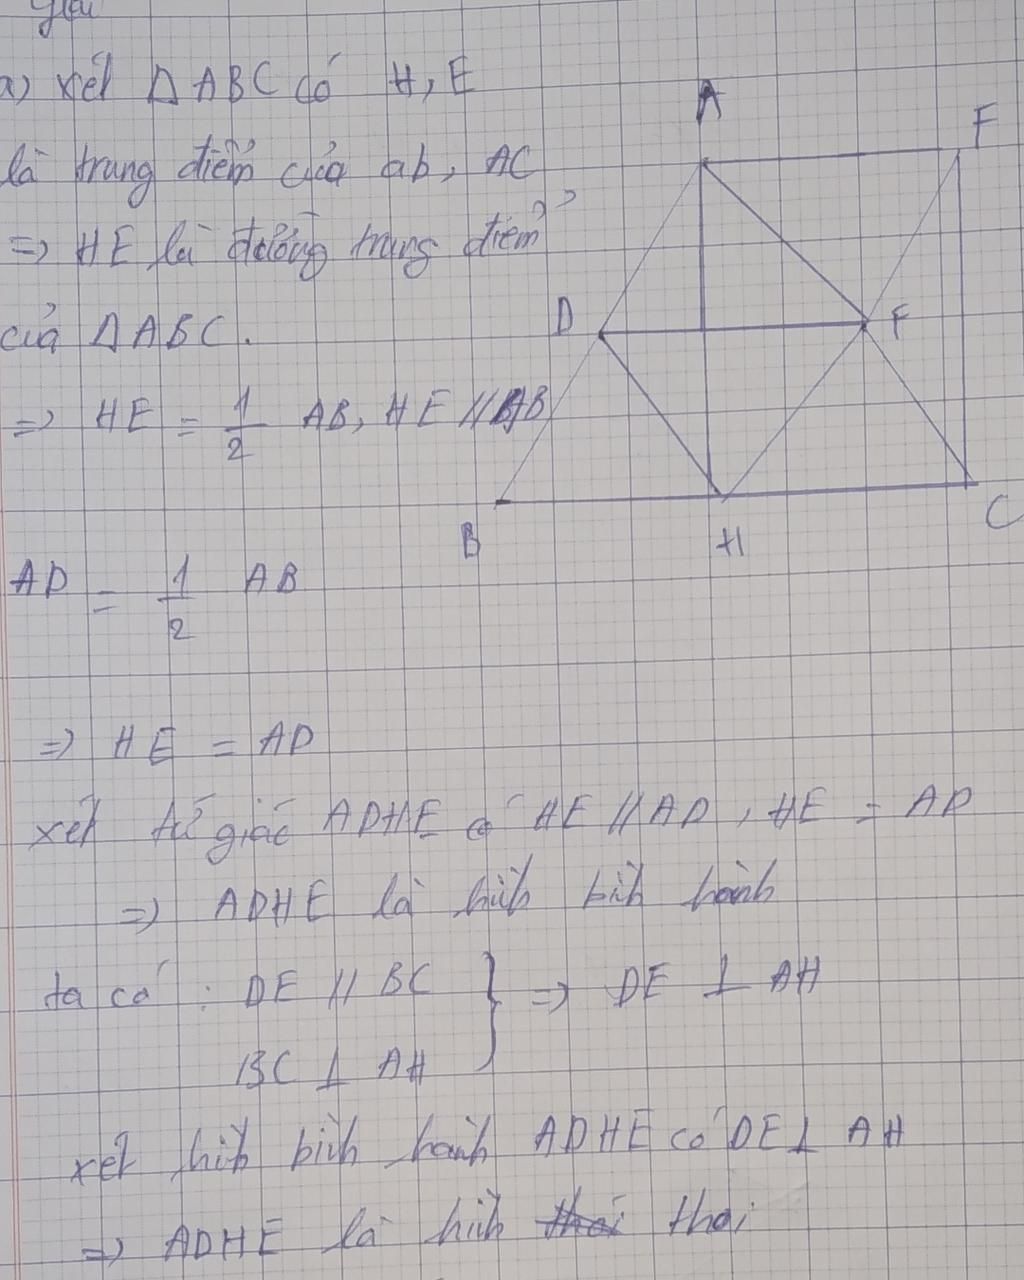 Giải
a) xét Δ ABC có H, E
là trung điểm của ab, AC
=> HE là đường trung điểm
của Δ ABC.
=> HE = 1/2 AB, HE // AB
AD = 1/2 AB
=> HE = AD
xét tứ giác ADHE có HE // AD, HE = AD
=> ADHE là hình bình hành
ta có : DE // BC } => DE ⊥ AH
BC ⊥ AH
xét hình bình hành ADHE có DE ⊥ AH
=> ADHE là hình thoi thoi
A
F
D
F
B
H
C